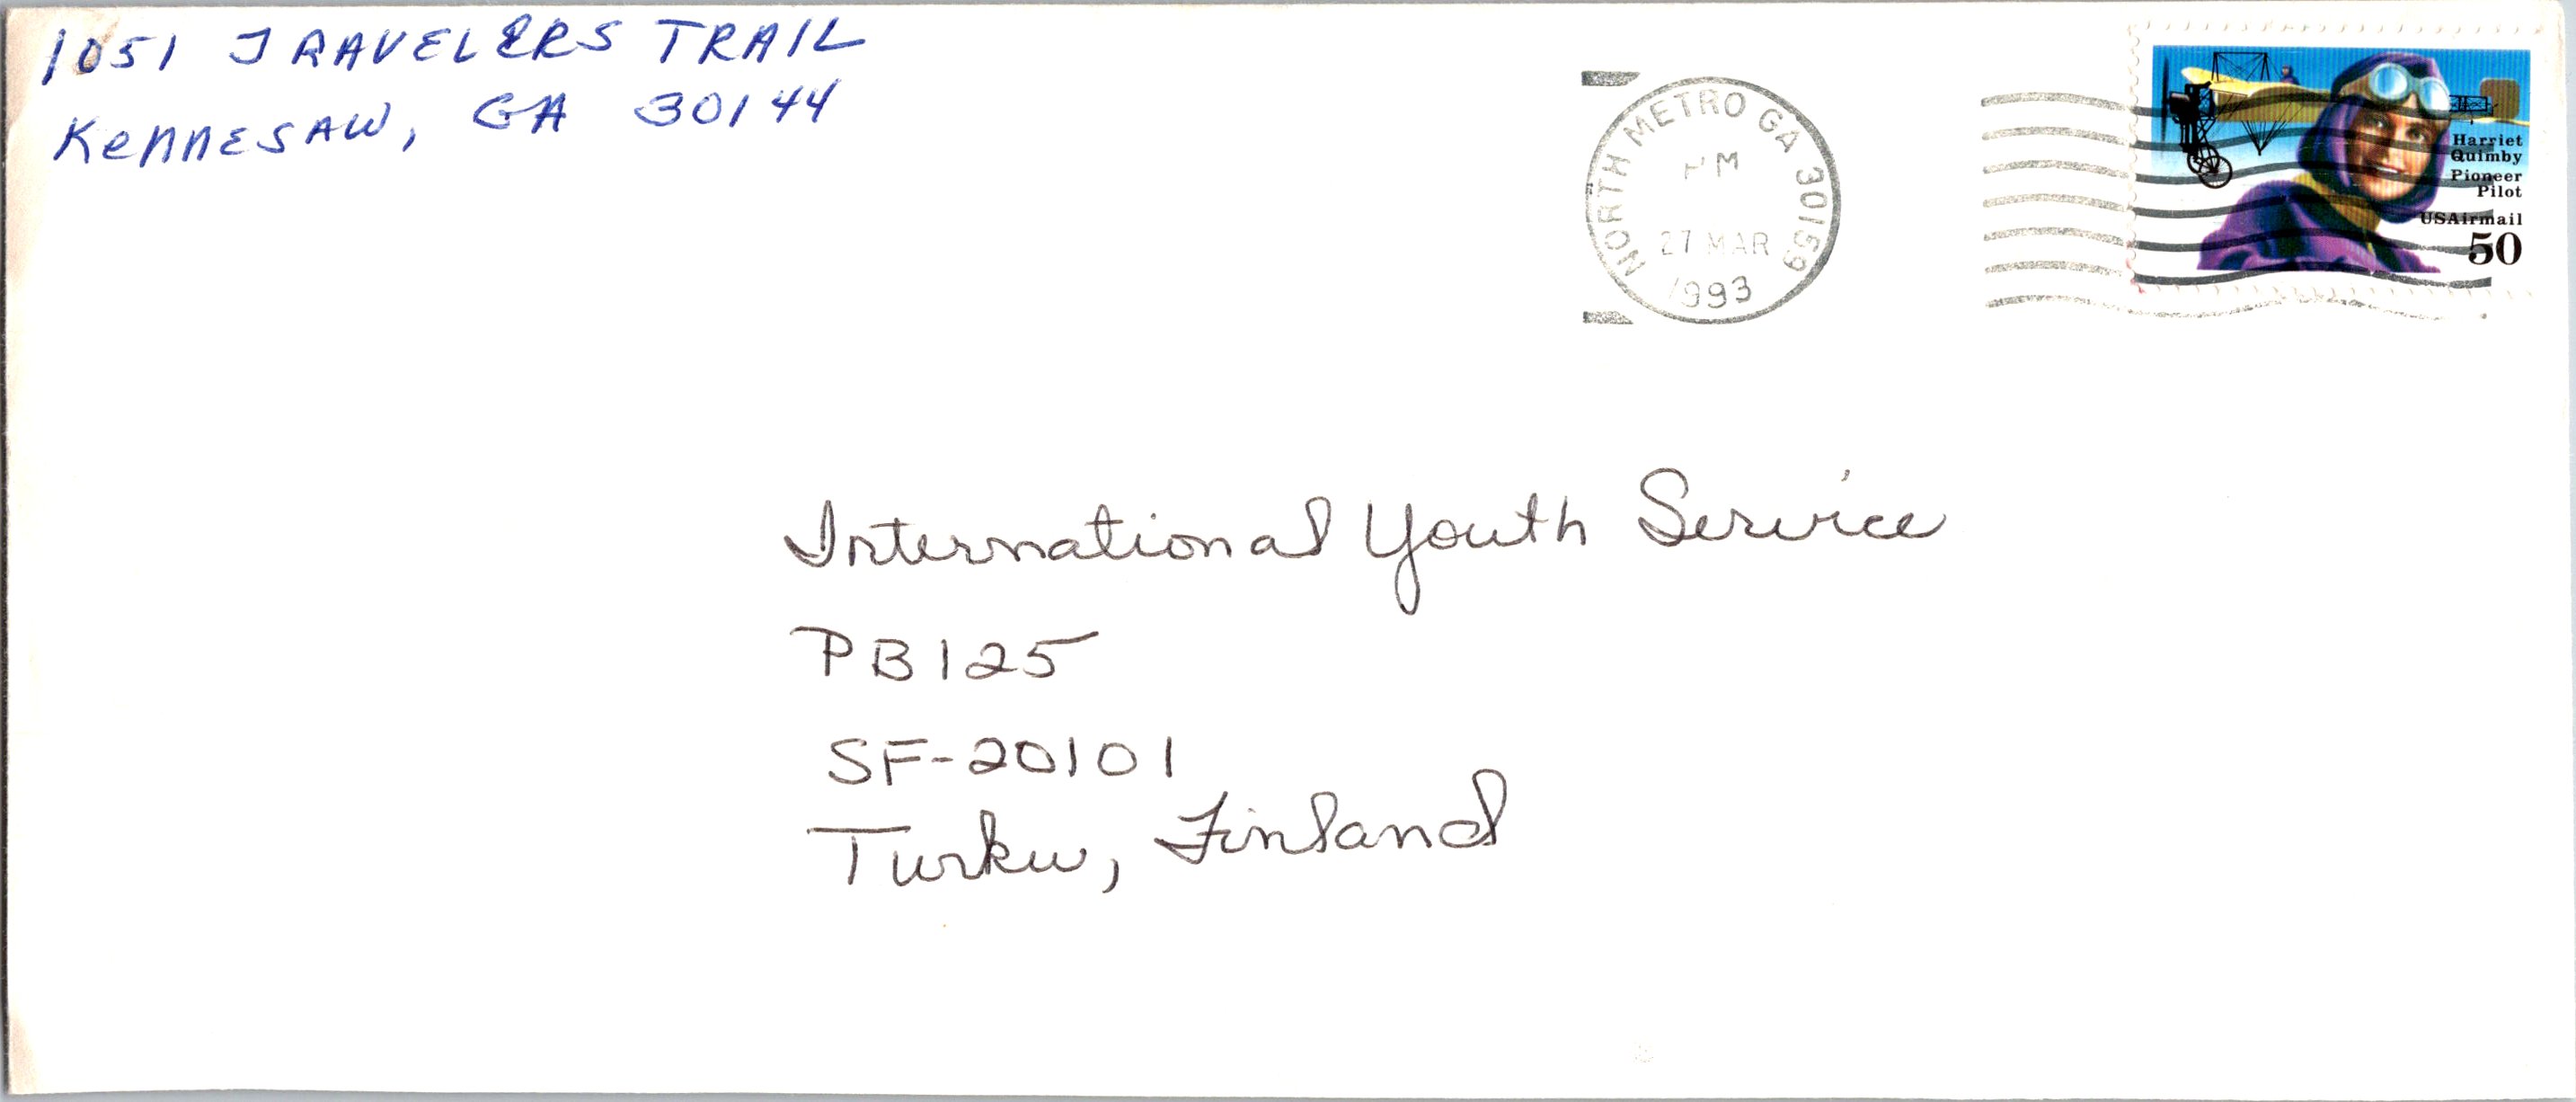 1051 TRAVELERS TRAIL
KENNESAW, GA 30144
NORTH METRO GA 30159
PM
27 MAR
1993
Harriet
Quimby
Pioneer
Pilot
USAirmail
50
International Youth Service
PB125
SF-20101
Turku, Finland